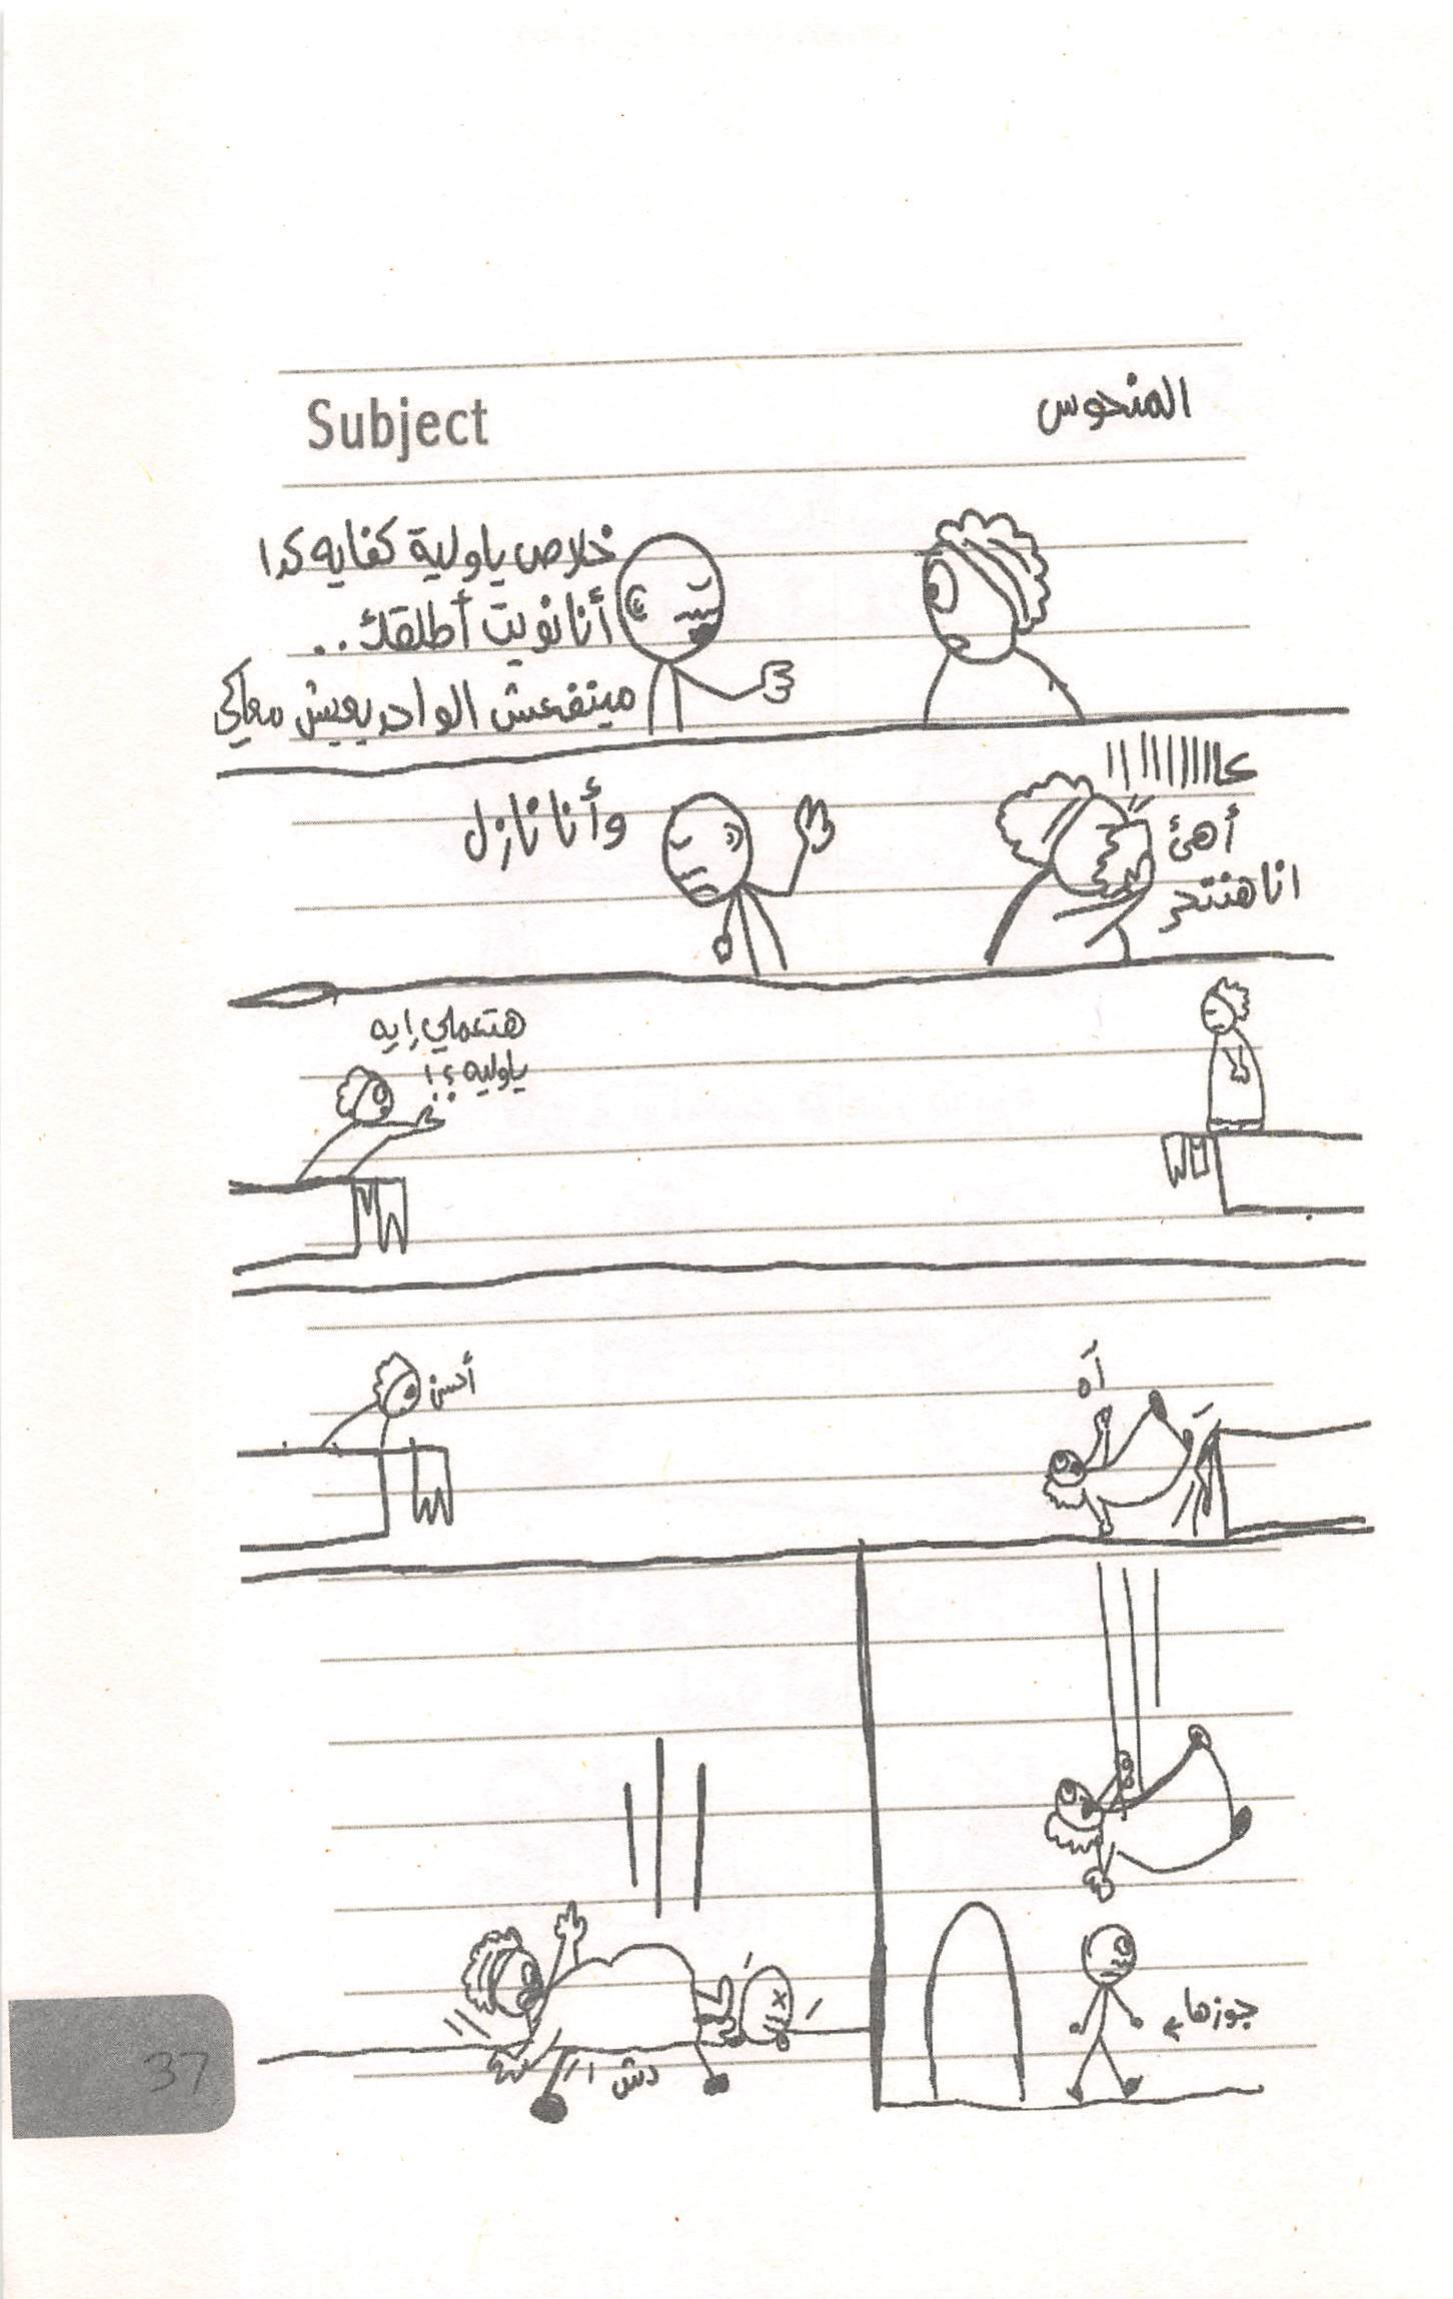 Subject
المنحوس
خلاص ياولية كفايه كدا
أنا نويت أطلقك..
مينفعش الواحد يعيش معاكي
عااااااااا
أهئ
انا هنتحر
وأنا نازل
هتعملي إيه
ياوليه؟!
آه
أحسن
جوزها
دش
37